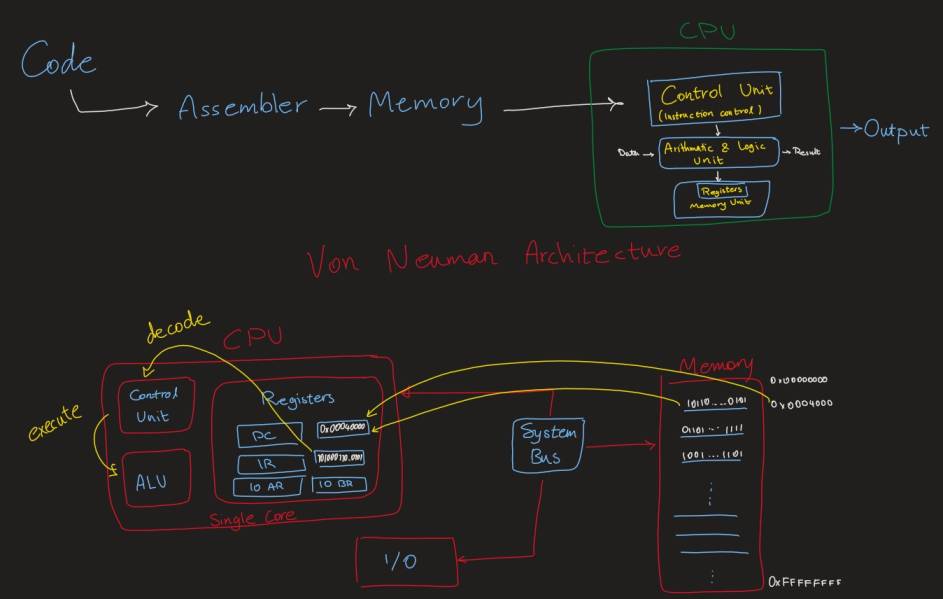 CPU
Code
Assembler
Memory
Control Unit
(Instruction control)
Data
Arithmatic & Logic
Unit
Result
Registers
Memory Unit
Output
Von Neuman Architecture
decode
CPU
execute
Control
Unit
ALU
Registers
PC
0x00040000
IR
IO AR
IO BR
Single Core
System
Bus
I/O
Memory
0x00000000
10110....0101
0x0004000
0101...1111
1001...1101
0xFFFFFFFF